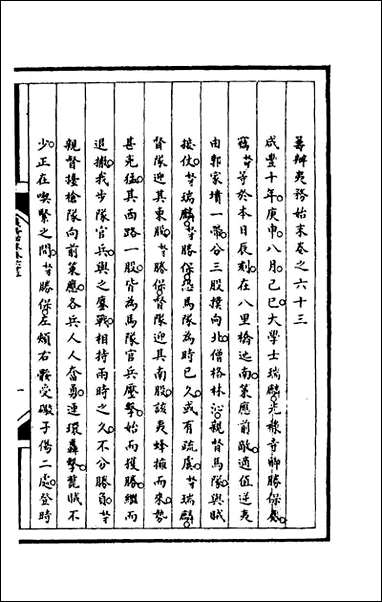 籌辦夷務始末卷之六十三
咸豐十年庚申八月己巳大學士瑞麟光祿寺卿勝保奏
竊等於本日辰刻在八里橋迤南策應前敵適值逆夷
由郭家墳一帶分三股撲向北僧格林沁親督馬隊與賊
接仗瑞麟勝保恐馬隊為時已久或有疏虞瑞麟
督隊迎其東股勝保督隊迎其南股該夷蜂擁而來勢
甚兇猛其西路一股皆為馬隊官兵鏖擊始而獲勝繼而
退撤我步隊官兵與之鏖戰相持兩時之久不分勝負
親督擡槍隊向前策應各兵人人奮勇連環轟擊斃賊不
少正在喫緊之間勝保左頰右骽受礮子傷二處登時